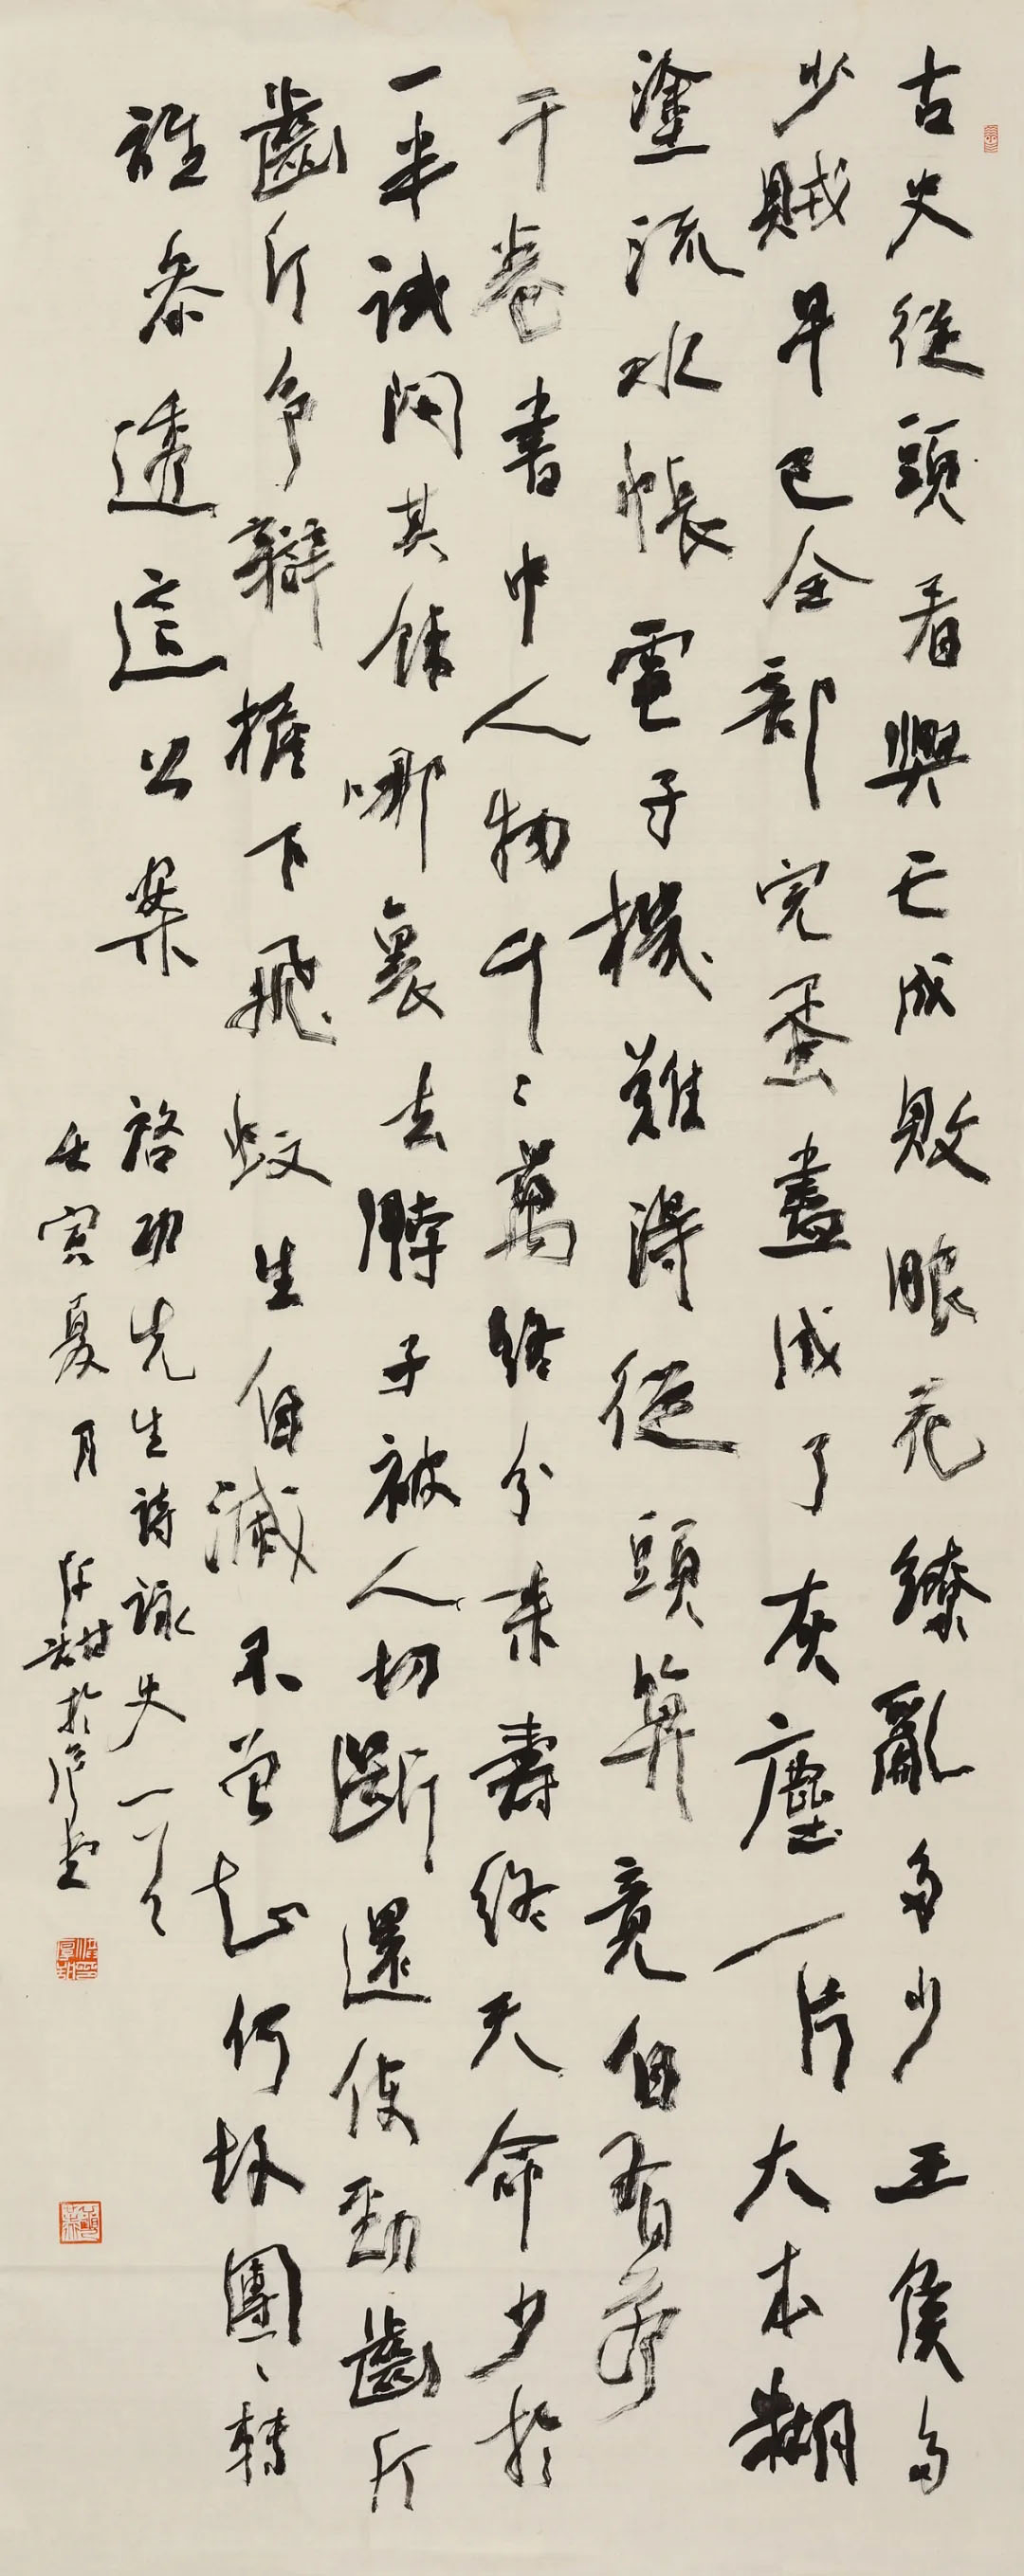 古史從頭看興亡成敗眼花繚亂多少王侯多
少賊早已全部完蛋盡成了灰塵一片大本糊
塗流水帳電子機難得從頭算竟自有若
干卷書中人物千〻萬終分未壽終天命少於
一半試問其餘哪裏去脖子被人切斷還使勁齒斤
齒斤爭辯檐下飛蚊生自滅不曾知何故團〻轉
誰參透這公案
啓功先生詩詠史一首
壬寅夏月